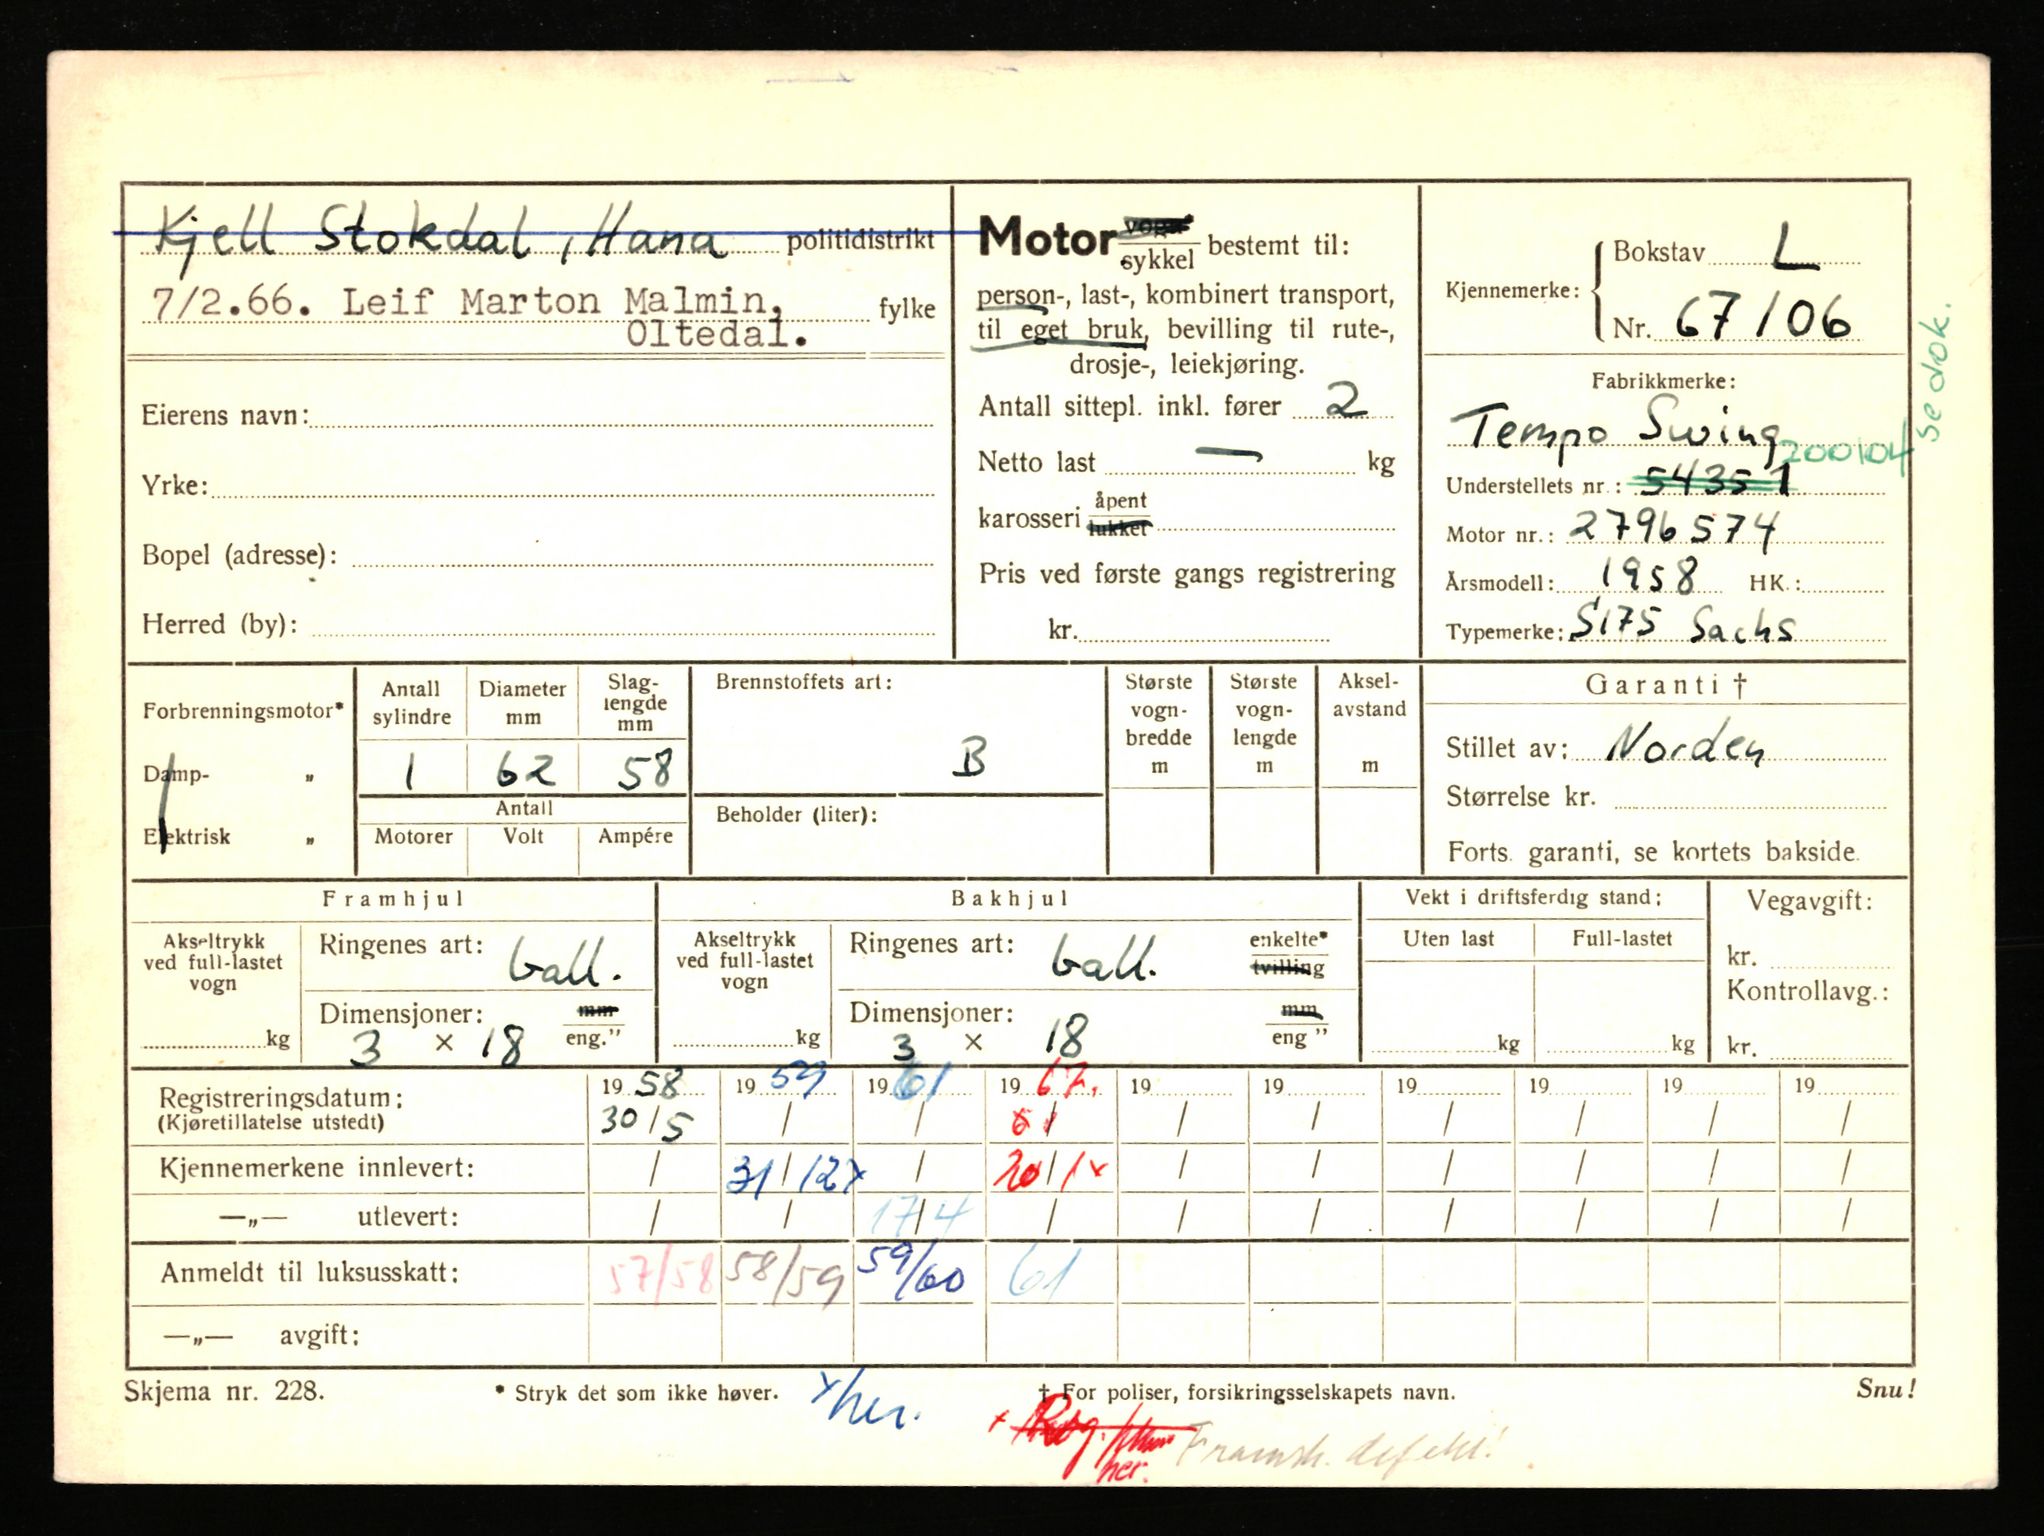 Kjell Stokdal, Hana politidistrikt
7/2.66. Leif Marton Malmin, fylke
Oltedal.
Eierens navn:
Yrke:
Bopel (adresse):
Herred (by):
Motor vogn* sykkel bestemt til:
person-, last-, kombinert transport,
til eget bruk, bevilling til rute-,
drosje-, leiekjøring.
Antall sittepl. inkl. fører 2
Netto last — kg
karosseri åpent lukket
Pris ved første gangs registrering
kr.
Kjennemerke: Bokstav L
Nr. 67106
se dok.
Fabrikkmerke:
Tempo Swing
200104
Understellets nr.: 54351
Motor nr.: 2796574
Årsmodell: 1958 HK.:
Typemerke: S175 Sachs
Forbrenningsmotor*
Damp- „
Elektrisk „
Antall sylindre
Diameter mm
Slaglengde mm
1 62 58
Antall
Motorer Volt Ampére
Brennstoffets art:
B
Beholder (liter):
Største vogn-bredde m
Største vogn-lengde m
Aksel-avstand m
Garanti †
Stillet av: Norden
Størrelse kr.
Forts. garanti, se kortets bakside.
Framhjul
Akseltrykk ved full-lastet vogn
kg
Ringenes art: ball.
Dimensjoner: mm
3 × 18 eng."
Bakhjul
Akseltrykk ved full-lastet vogn
kg
Ringenes art: ball. enkelte* tvilling
Dimensjoner: mm
3 × 18 eng "
Vekt i driftsferdig stand:
Uten last Full-lastet
kg kg
Vegavgift:
kr.
Kontrollavg.:
kr.
Registreringsdatum: 1958 1959 1961 1967. 19 19 19 19 19 19
(Kjøretillatelse utstedt) 30/5 / / / / / / / / /
Kjennemerkene innlevert: / 31/12x / 20/1x / / / / / /
—„— utlevert: / / 17/4 / / / / / / /
Anmeldt til luksusskatt: 57/58 58/59 59/60 61
—„— avgift:
Skjema nr. 228. * Stryk det som ikke høver. † For poliser, forsikringsselskapets navn. Snu!
x her.
x her.
defekt!